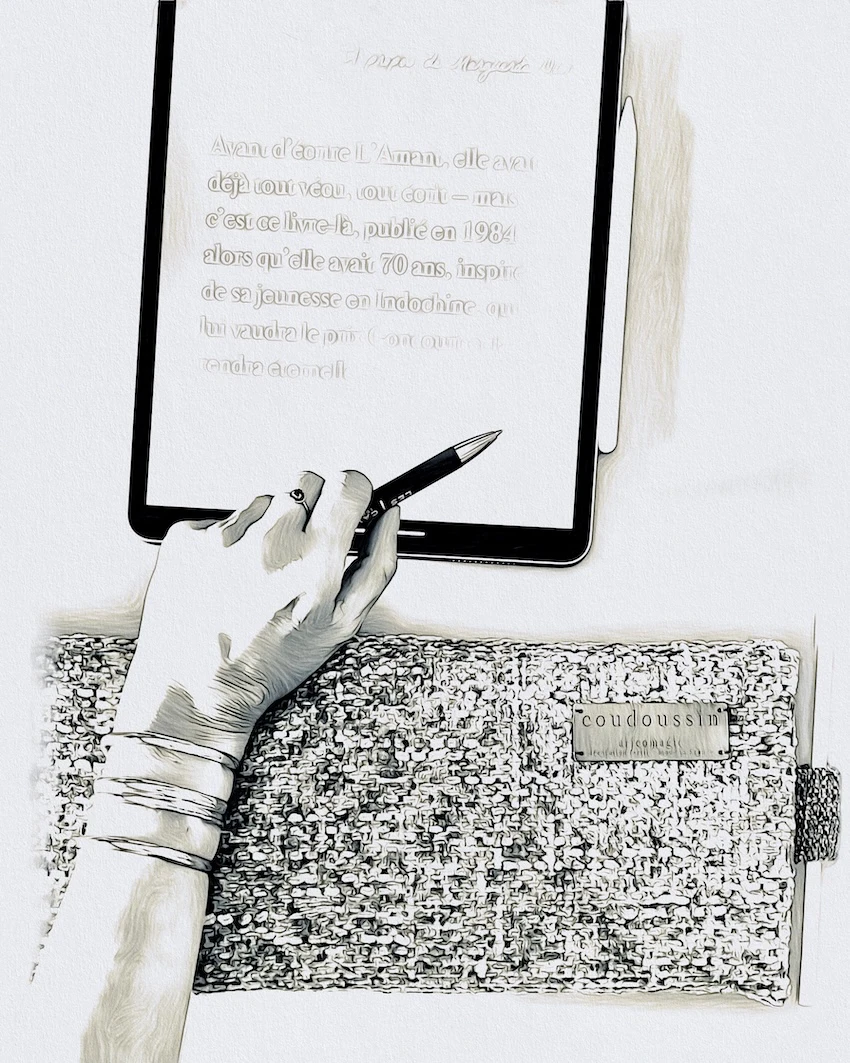 À propos de Marguerite
Avant d'écrire L'Amant, elle avait
déjà tout vécu, tout écrit – mais
c'est ce livre-là, publié en 1984
alors qu'elle avait 70 ans, inspiré
de sa jeunesse en Indochine, qui
lui vaudra le prix Goncourt
rendra éternelle
LES
coudoussin